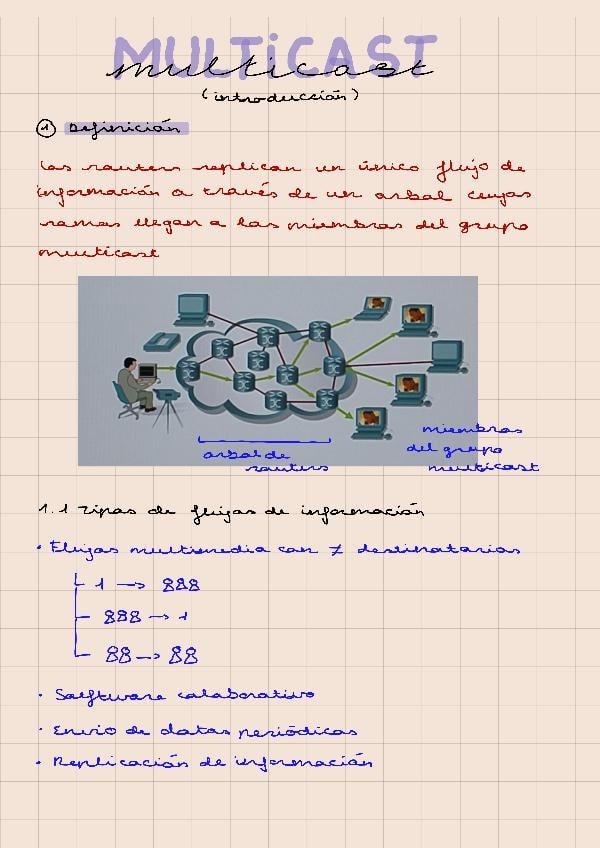 MULTiCAST
multicast
(introducción)
① Definición
Los routers replican un único flujo de
información a través de un arbol cuyas
ramas llegan a los miembros del grupo
multicast
arbol de
routers
miembros
del grupo
multicast
1.1 Tipos de flujos de información
• Flujos multimedia con ≠ destinatarios
1 → 888
888 → 1
88 → 88
• Software colaborativo
• Envío de datos periódicos
• Replicación de información